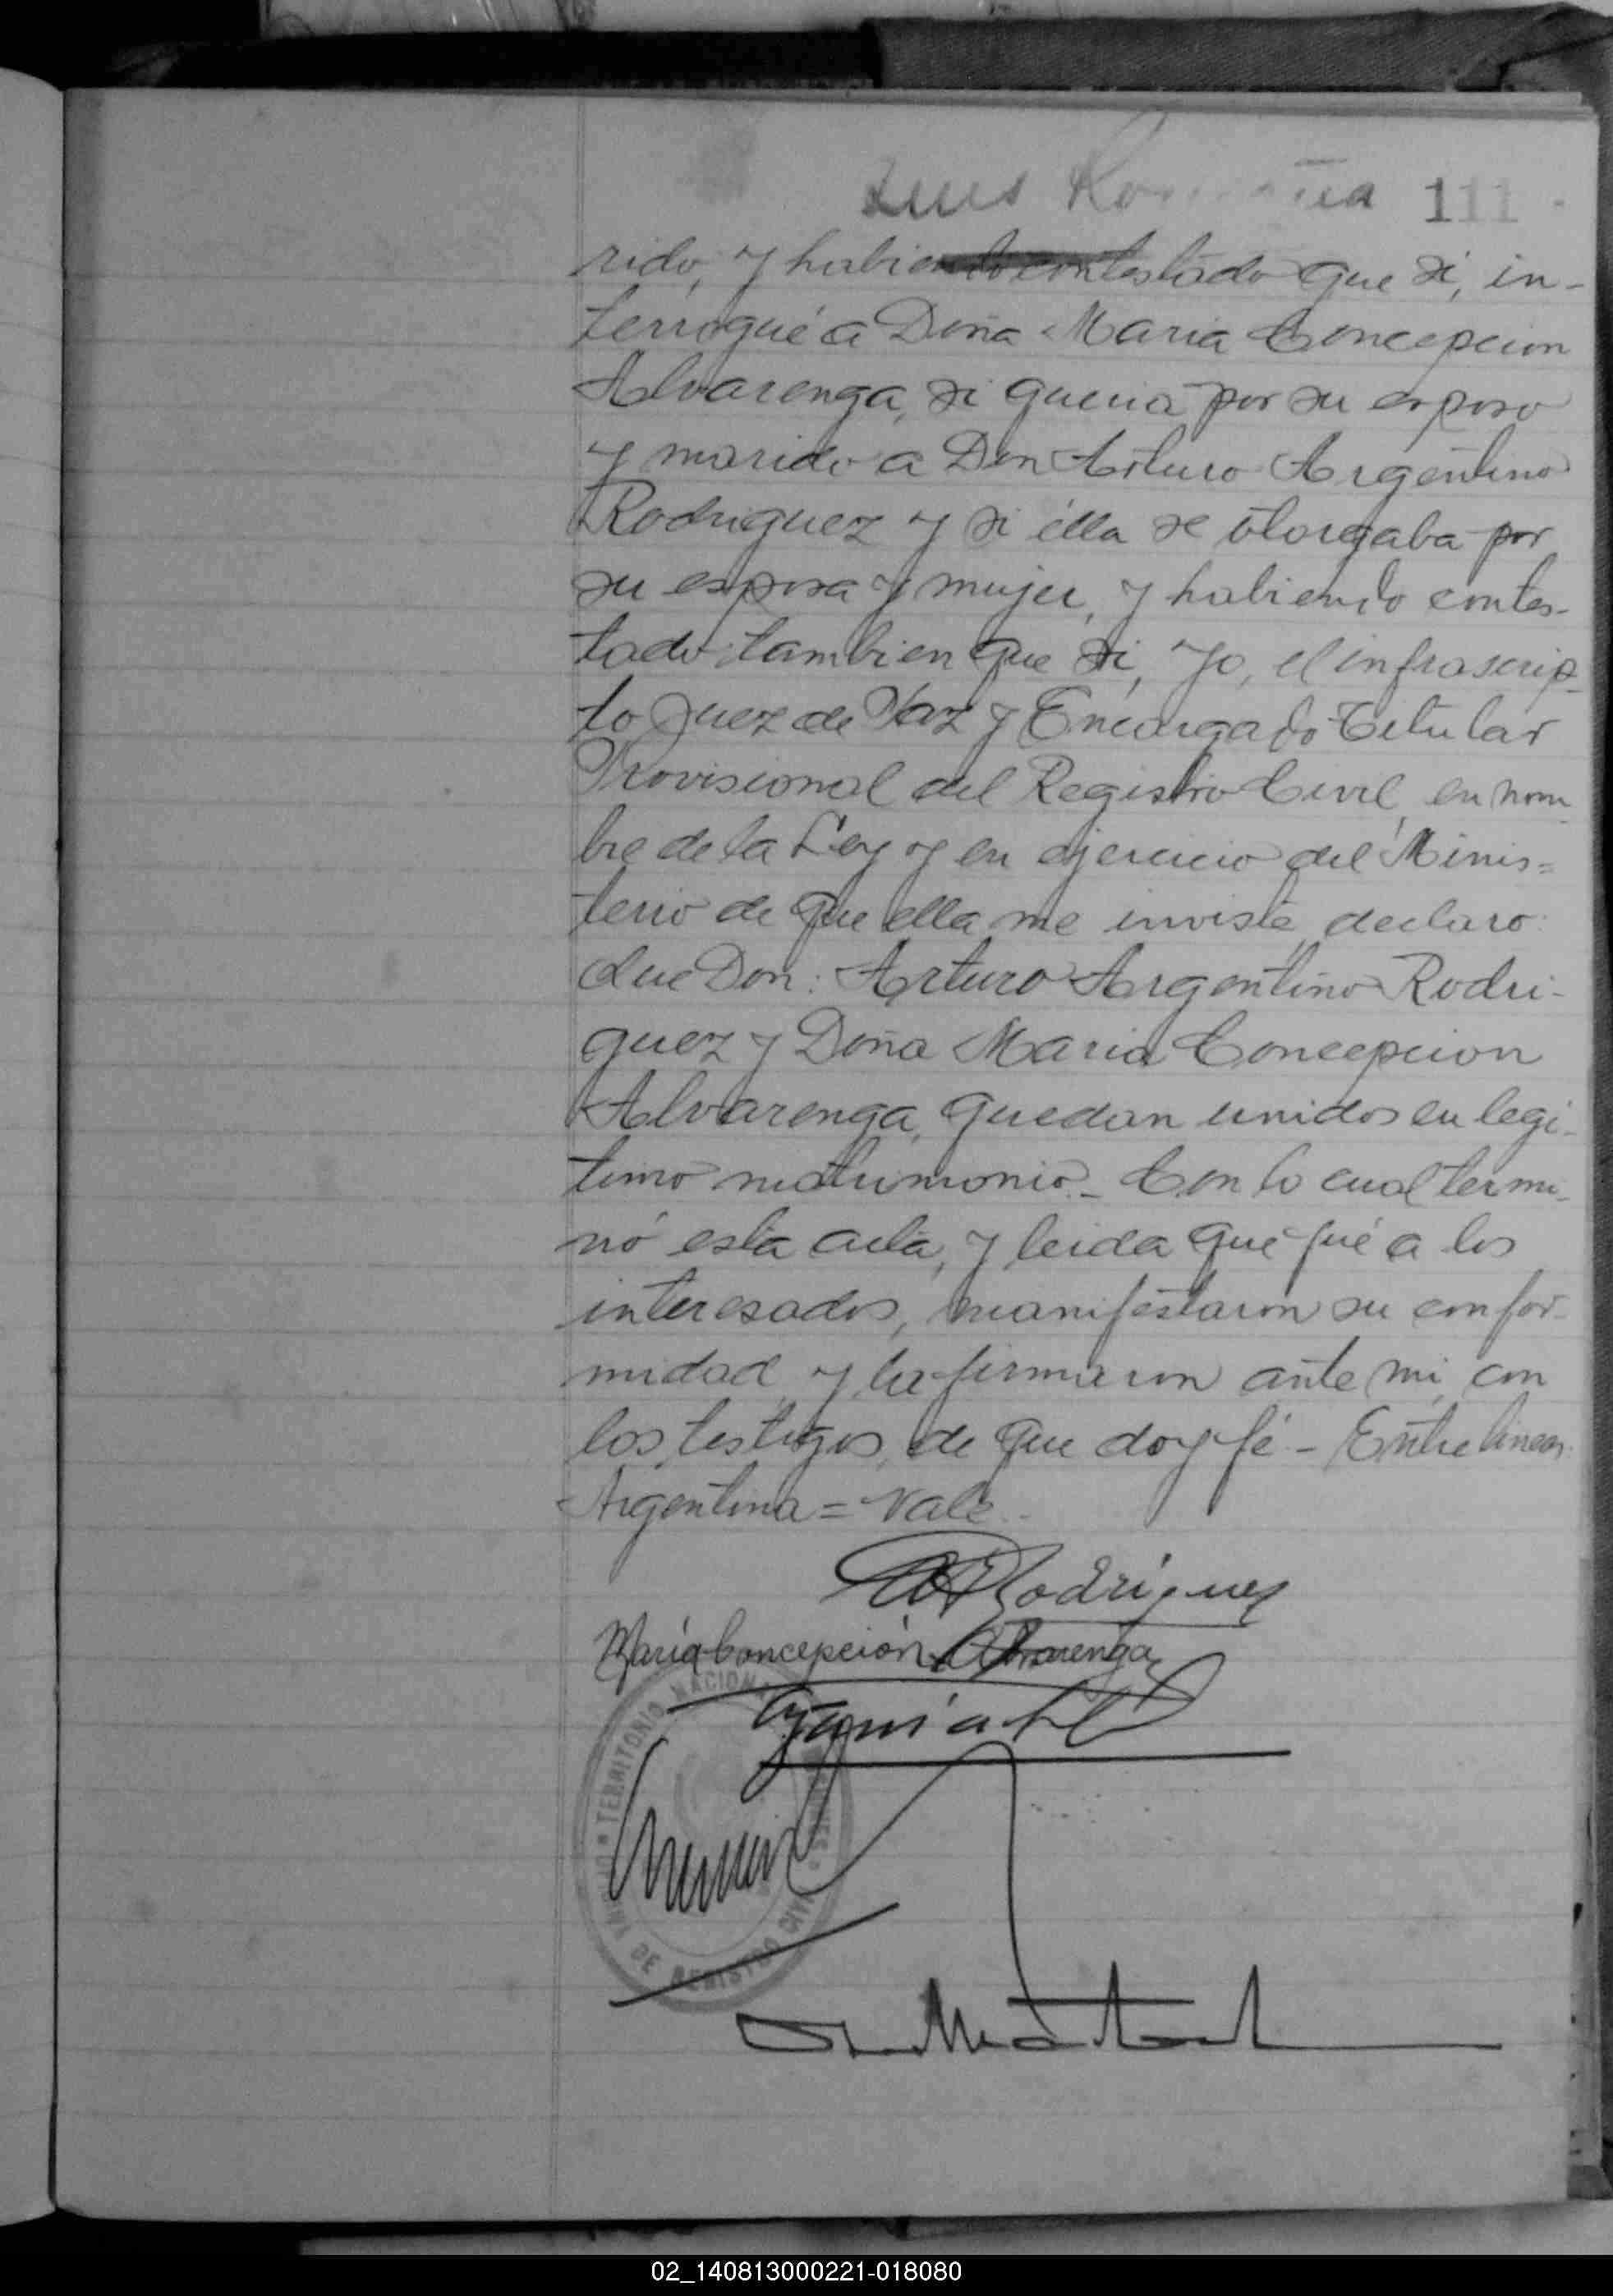 Luis 111
rido, y habiendo contestado que si, in-
terrogué a Doña Maria Concepcion
Alvarenga, si queria por su esposo
y marido a Don Arturo Argentino
Rodriguez y si élla se otorgaba por
su esposa y mujer, y habiendo contes-
tado tambien que si, Yo, el infrascrip-
to Juez de Paz y Encargado Titular
Provisional del Registro Civil, en nom
bre de la Ley y en ejercicio del Minis=
terio de que ella me inviste, declaro:
Que Don: Arturo Argentino Rodri-
guez y Doña Maria Concepcion
Alvarenga, quedan unidos en legi-
timo matrimonio.- Con lo cual termi-
nó esta acta, y leida que fué a los
interesados, manifestaron su confor-
midad, y la firmaron ante mi, con
los testigos, de que doy fé.- Entre lineas:
Argentina = Vale.-
Rodriguez
María Concepción Alvarenga
TERRITORIO NACIONAL
DE REGISTRO CIVIL
02_140813000221-018080